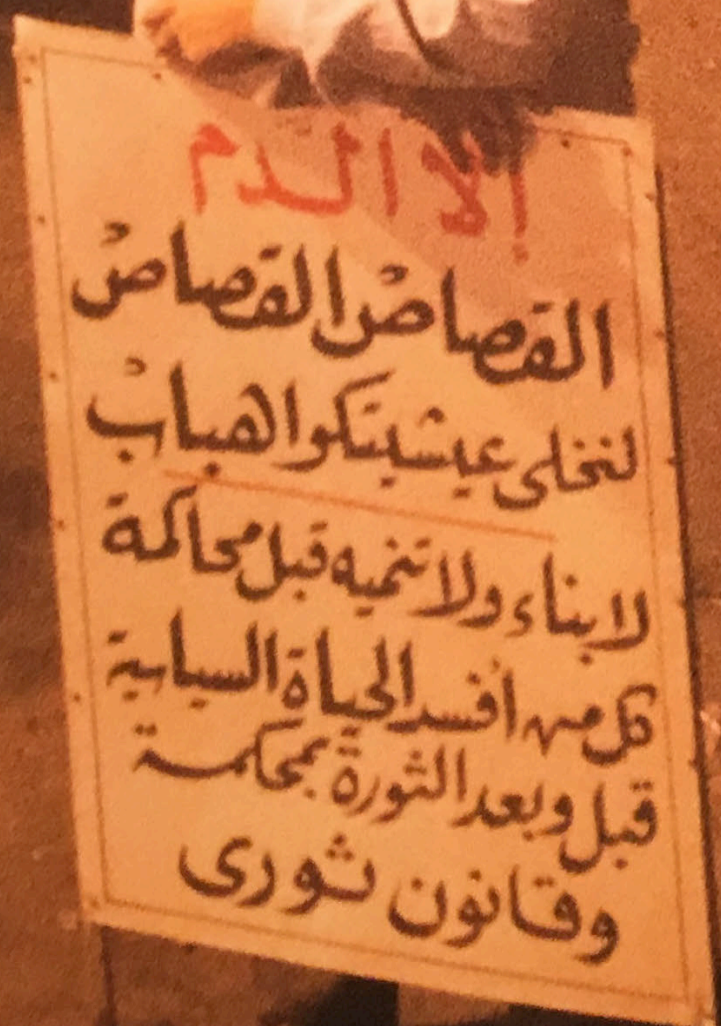 إلا الدم
القصاص القصاص
لنخلى عيشيتكوا هباب
لا بناء ولا تنميه قبل محاكمة
كل من أفسد الحياة السياسية
قبل وبعد الثورة بمحكمة
وقانون ثورى